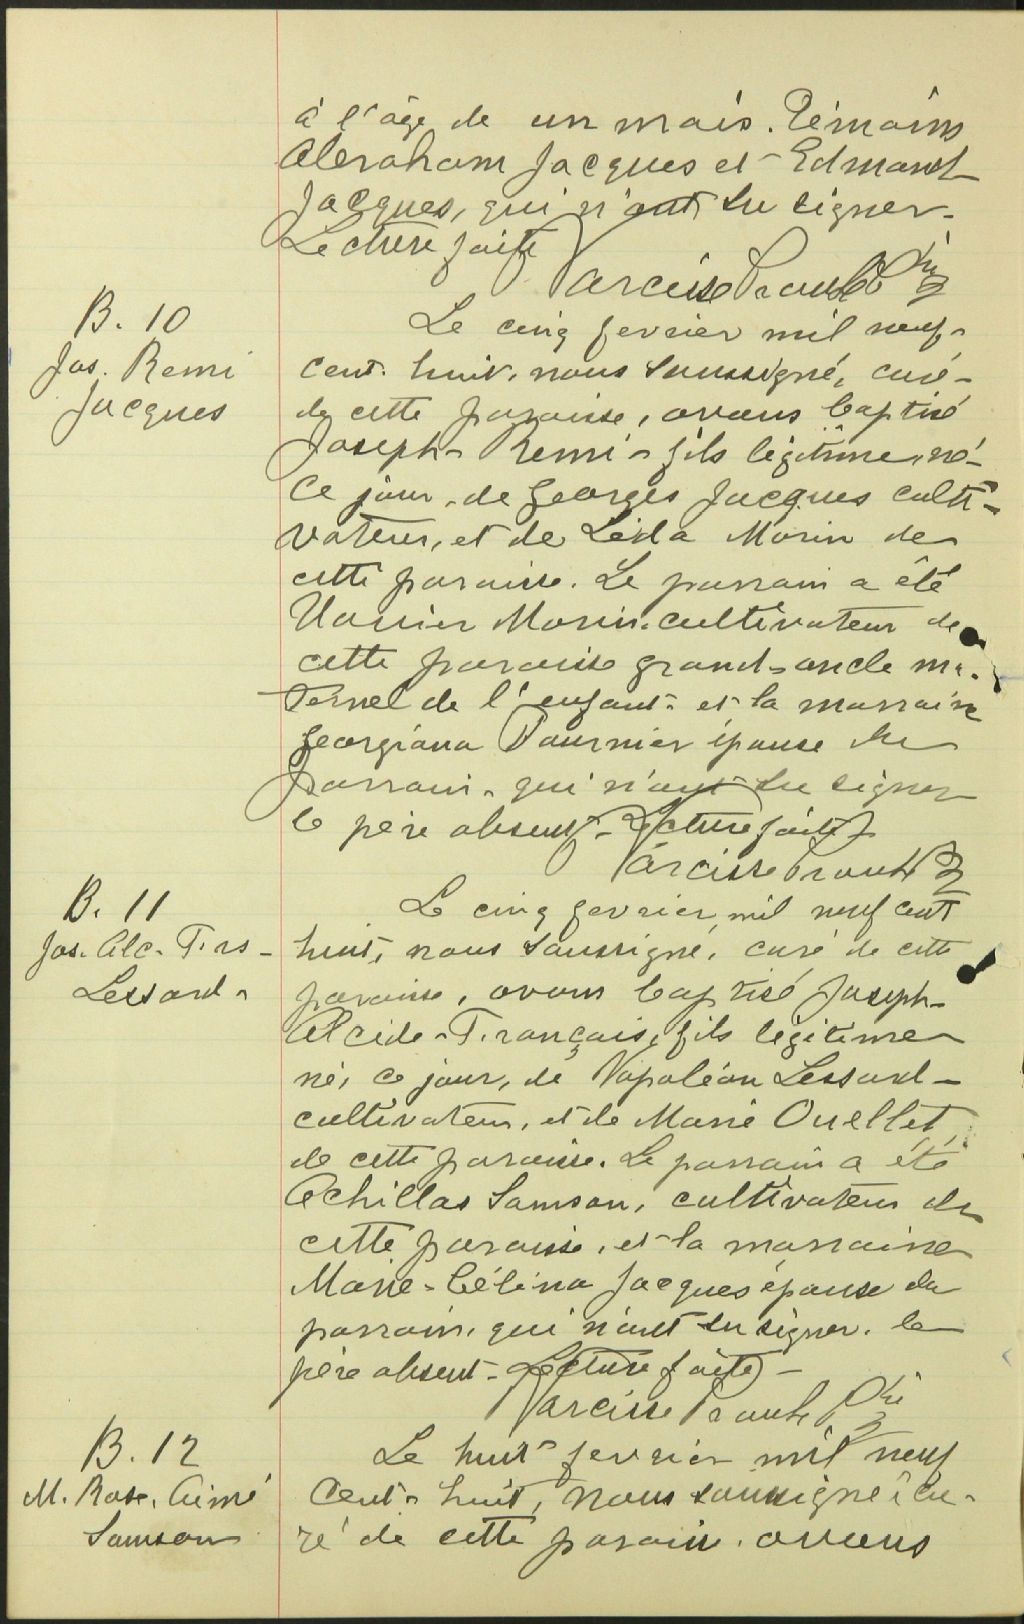 à l'âge de un mois. Témoins
Abraham Jacques et Edmond
Jacques, qui n'ont su signer.
Lecture faite
Narcisse Proulx Ptre
B. 10
Jos. Remi
Jacques
Le cinq fevrier mil neuf-
cent huit, nous soussigné, curé
de cette paroisse, avons baptisé
Joseph-Remi-fils légitime, né
ce jour, de Georges Jacques culti-
vateur, et de Léda Morin de
cette paroisse. Le parrain a été
Morin, cultivateur de
cette paroisse grand-oncle ma-
ternel de l'enfant et la marraine
Georgiana Fournier épouse du
parrain, qui n'ont su signer
le père absent. Lecture faite
Narcisse Proulx
B. 11
Jos. Alc. F.rs
Lessard
Le cinq fevrier mil neuf cent
huit, nous soussigné, curé de cette
paroisse, avons baptisé Joseph-
Alcide-François, fils légitime
né, ce jour, de Napoléon Lessard
cultivateur, et de Marie Ouellet,
de cette paroisse. Le parrain a été
Achillas Samson, cultivateur de
cette paroisse, et la marraine
Marie-Célina Jacques épouse du
parrain, qui n'ont su signer. le
père absent. Lecture faite
Narcisse Proulx Ptre
B. 12
M. Rose. Aimé
Samson
Le huit fevrier mil neuf
cent huit, nous soussigné, cu-
ré de cette paroisse. avons